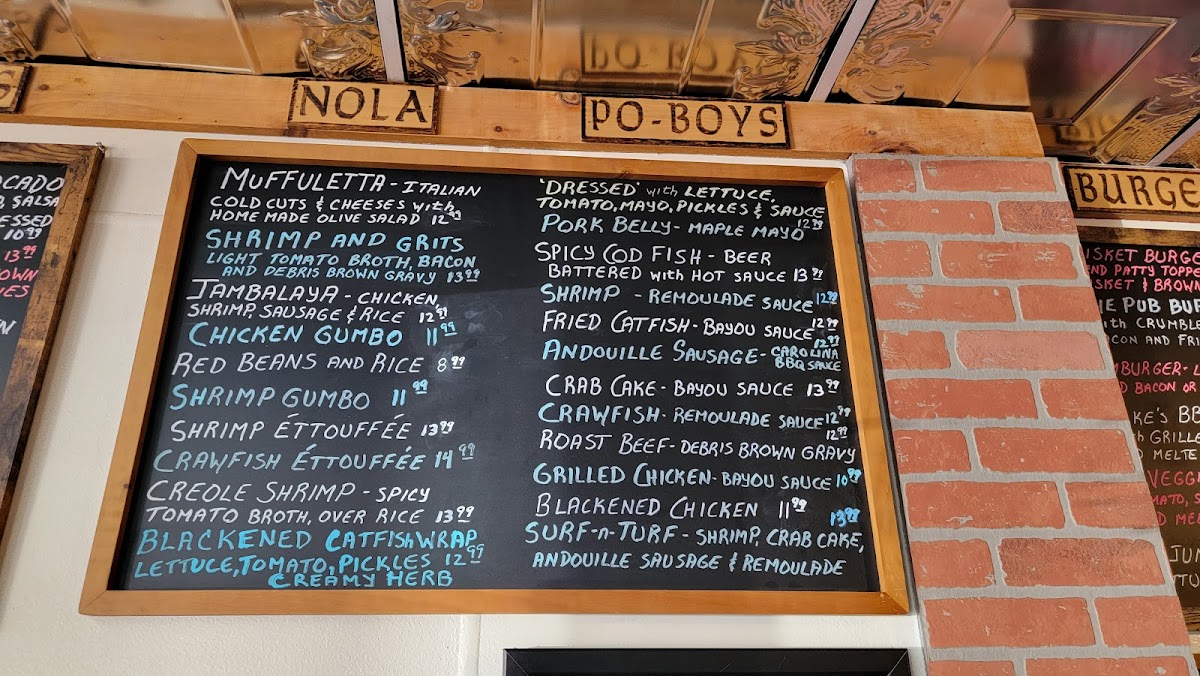 NOLA
PO-BOYS
BURGE
OCADO
SALSA
ESSED
10.99
13.99
OWN
IES
MUFFULETTA - ITALIAN
COLD CUTS & CHEESES with
HOME MADE OLIVE SALAD 12.99
SHRIMP AND GRITS
LIGHT TOMATO BROTH, BACON
AND DEBRIS BROWN GRAVY 13.99
JAMBALAYA - CHICKEN,
SHRIMP, SAUSAGE & RICE 12.99
CHICKEN GUMBO 11.99
RED BEANS AND RICE 8.99
SHRIMP GUMBO 11.99
SHRIMP ÉTTOUFFÉE 13.99
CRAWFISH ÉTTOUFFÉE 14.99
CREOLE SHRIMP - SPICY
TOMATO BROTH, OVER RICE 13.99
BLACKENED CATFISH WRAP
LETTUCE, TOMATO, PICKLES 12.99
CREAMY HERB
'DRESSED' with LETTUCE,
TOMATO, MAYO, PICKLES & SAUCE
PORK BELLY - MAPLE MAYO 12.99
SPICY COD FISH - BEER
BATTERED with HOT SAUCE 13.99
SHRIMP - REMOULADE SAUCE 12.99
FRIED CATFISH - BAYOU SAUCE 12.99
ANDOUILLE SAUSAGE - CAROLINA 12.99
BBQ SAUCE
CRAB CAKE - BAYOU SAUCE 13.99
CRAWFISH - REMOULADE SAUCE 12.99
ROAST BEEF - DEBRIS BROWN GRAVY 12.99
GRILLED CHICKEN - BAYOU SAUCE 10.99
BLACKENED CHICKEN 11.99
SURF-N-TURF - SHRIMP, CRAB CAKE, 13.99
ANDOUILLE SAUSAGE & REMOULADE
ISKET BURGE
END PATTY TOPPE
ISKET & BROWN
IE PUB BU
ith CRUMBLE
CON AND FRI
BURGER - L
D BACON OR
KE'S BB
GRILLE
D MELTE
VEGG
MATO, S
D ME
JU
TTU